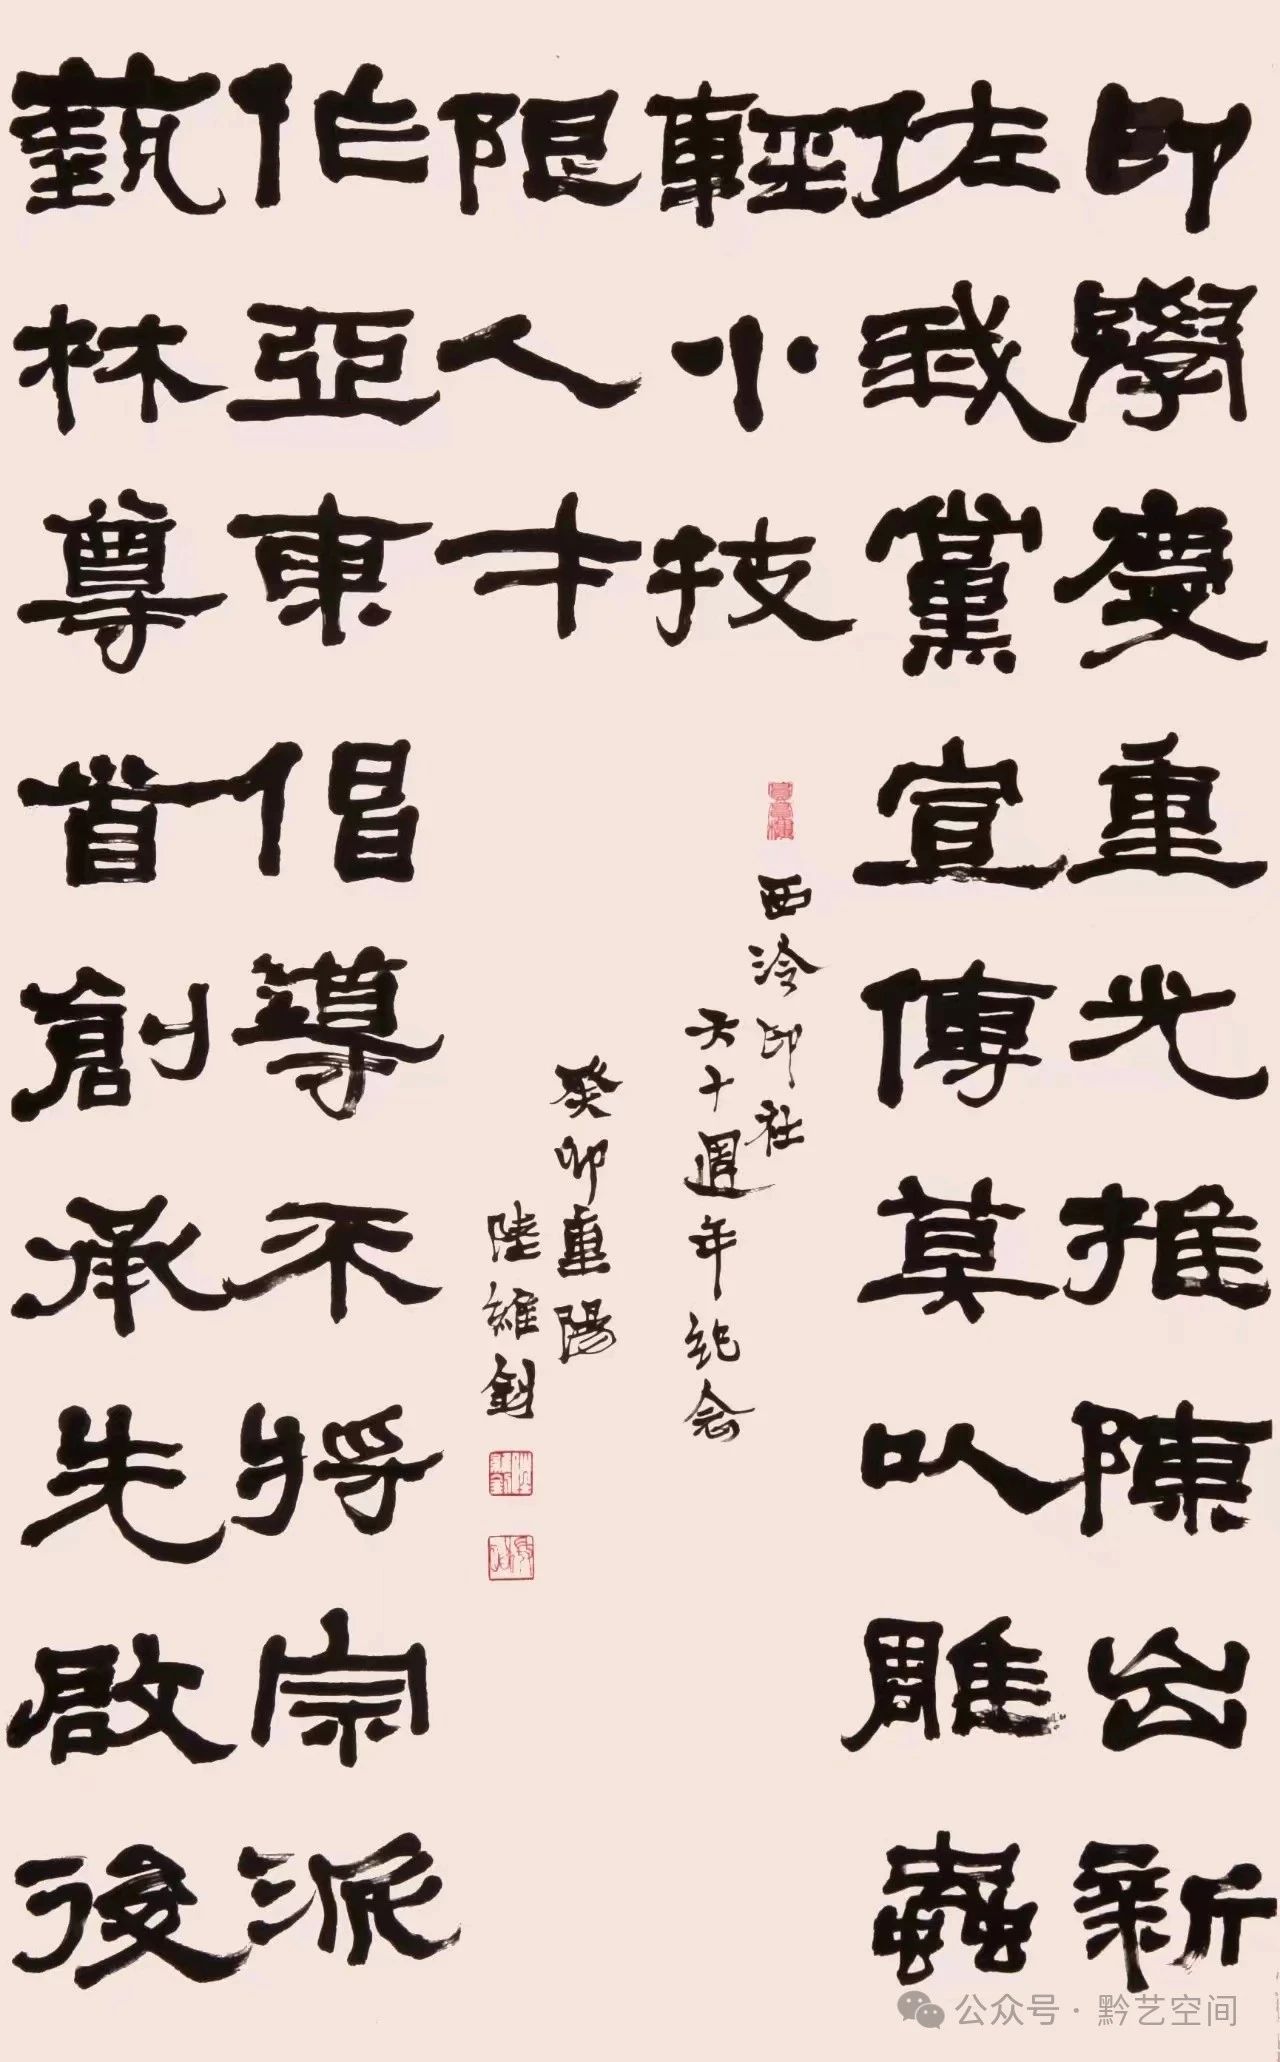 印學慶重光推陳出新
佐我黨宣傳莫以雕蟲
輕小技
西泠印社
六十週年紀念
藝林尊首創承先啟後
作亞東倡導不將宗派
限人才
癸卯重陽
陸維釗
公众号 · 黔艺空间